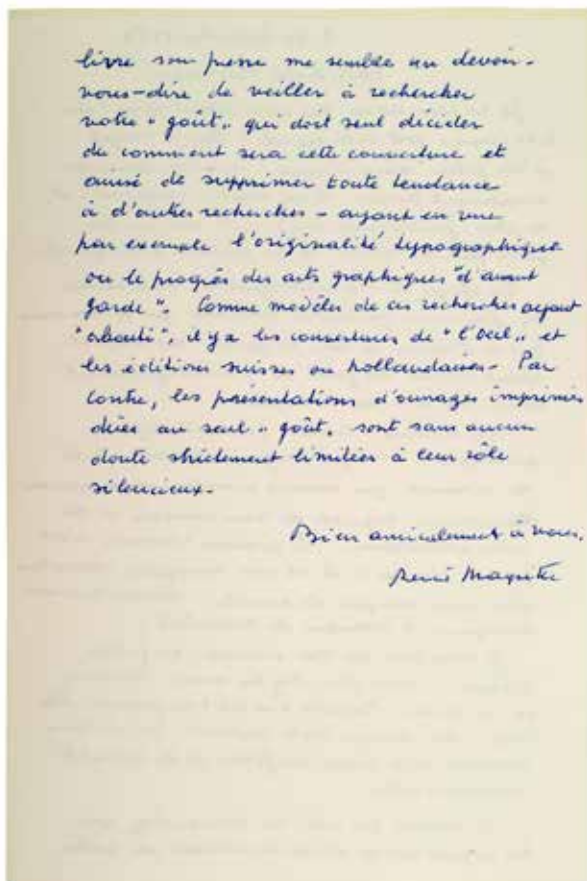 livre sous presse me semble un devoir -
vous-dire de veiller à rechercher
votre " goût „ qui doit seul décider
du comment sera cette couverture et
ainsi de supprimer toute tendance
à d'autres recherches - ayant en vue
par exemple l'originalité typographique
ou le progrès des arts graphiques "d'avant
garde". Comme modèles de ces recherches ayant
"abouti", il y a les couvertures de "l'oeil„ et
les éditions suisses ou hollandaises - Par
contre, les présentations d'ouvrages imprimés
dûes au seul " goût, sont sans aucun
doute strictement limitées à leur rôle
silencieux -
Bien amicalement à vous,
René Magritte